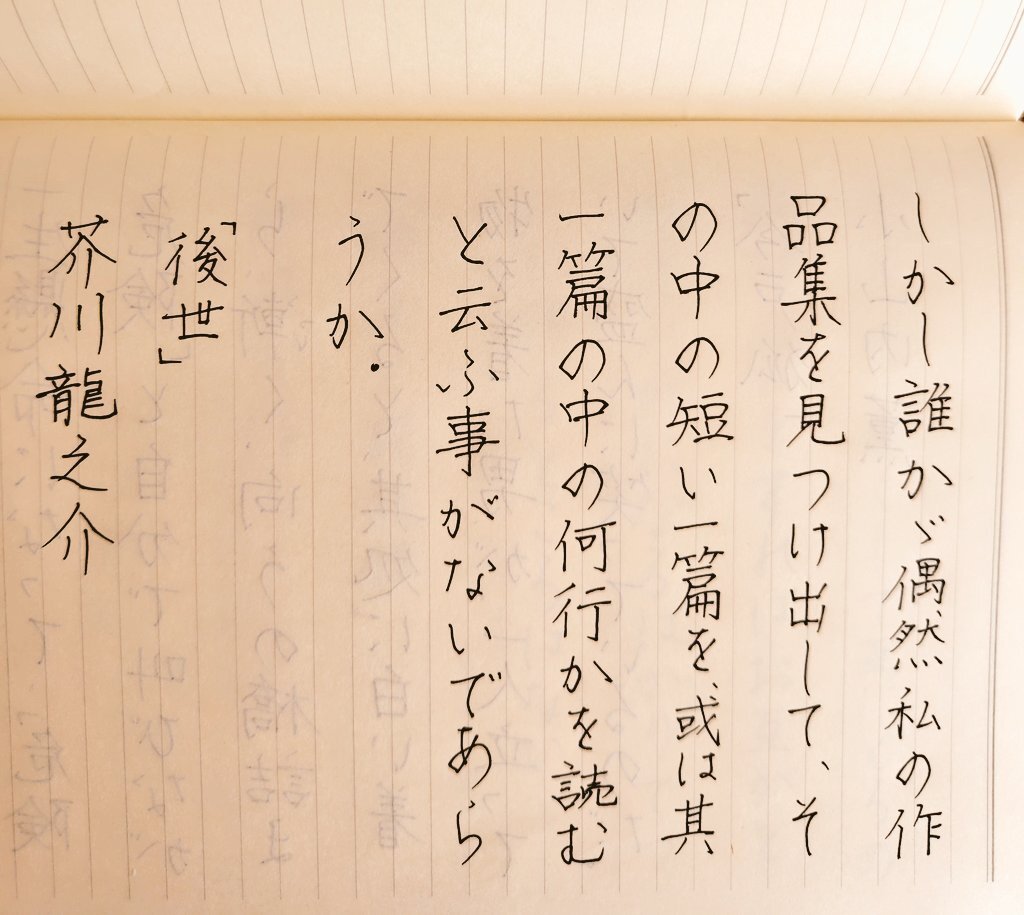 しかし誰かゞ偶然私の作
品集を見つけ出して、そ
の中の短い一篇を、或は其
一篇の中の何行かを読む
と云ふ事がないであら
うか.
「後世」
芥川龍之介